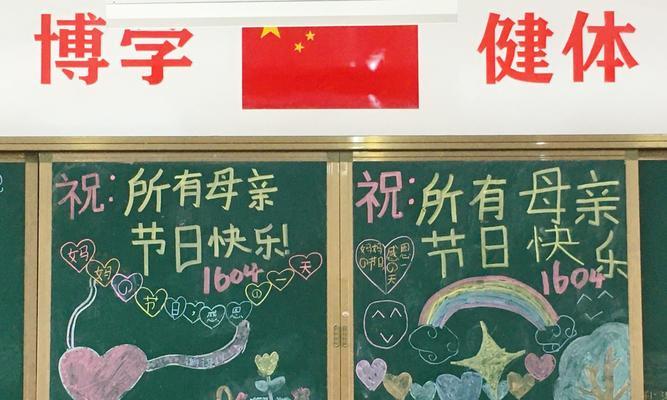 博学 健体
祝:所有母亲
节日快乐!
1604
妈妈の节日,感恩の一天
祝:所有母亲
节日快乐
1604
妈妈の节日
感恩の一天